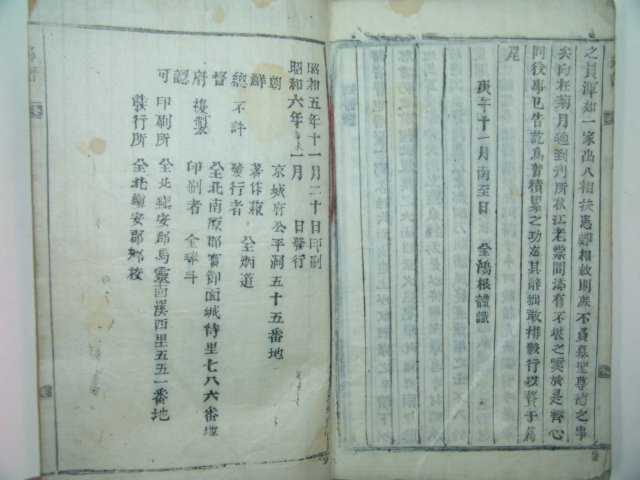 之員渾如一家出入相扶患難相救則庶不負慕聖尊德之事
矣向在菊月適到刊所秋江老業間添有不堪之寞於是齊心
同役事已告訖爲賀積累之功忘其辭拙敢構數行以贅于篇
尾
庚午十一月南至日 金鴻根謹識
昭和五年十一月二十日印刷
昭和六年 一月 日發行
朝鮮總督府認可
不許複製
京城府公平洞五十五番地
著作兼發行者 金炳道
全北南原郡寶節面城侍里七八六番地
印刷者 金奉斗
全北鎭安郡馬靈面溪西里五五一番地
印刷所 全北鎭安郡鄕校
發行所